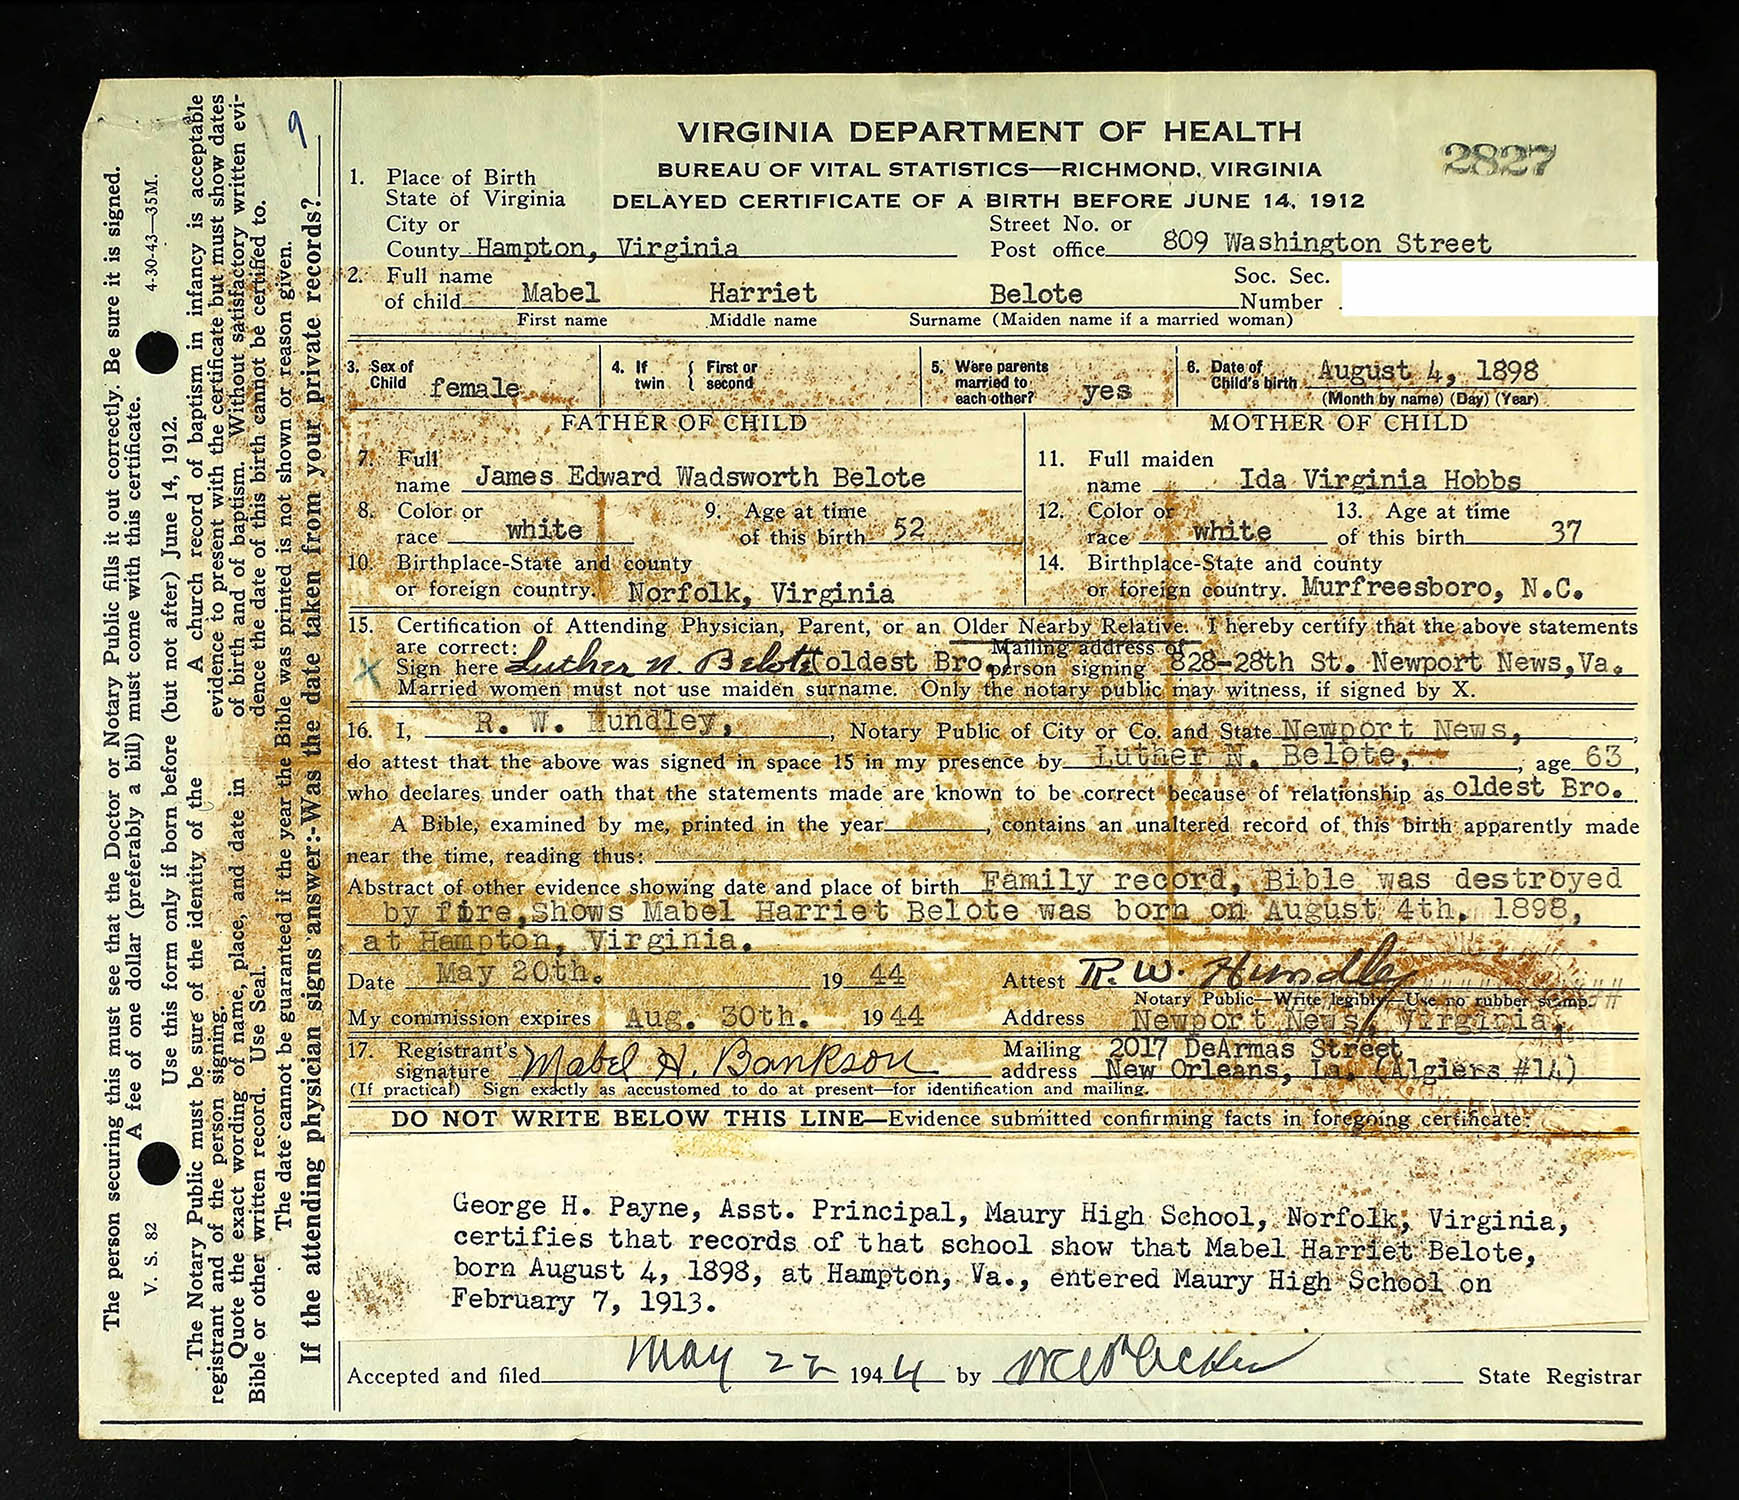 VIRGINIA DEPARTMENT OF HEALTH
BUREAU OF VITAL STATISTICS—RICHMOND, VIRGINIA
DELAYED CERTIFICATE OF A BIRTH BEFORE JUNE 14, 1912
2827
1. Place of Birth
State of Virginia
City or County Hampton, Virginia
Street No. or Post office 809 Washington Street
2. Full name of child Mabel Harriet Belote
Soc. Sec. Number
First name Middle name Surname (Maiden name if a married woman)
3. Sex of Child female
4. If twin { First or second
5. Were parents married to each other? yes
6. Date of Child's birth August 4, 1898
(Month by name) (Day) (Year)
FATHER OF CHILD
MOTHER OF CHILD
7. Full name James Edward Wadsworth Belote
11. Full maiden name Ida Virginia Hobbs
8. Color or race white
9. Age at time of this birth 52
12. Color or race white
13. Age at time of this birth 37
10. Birthplace-State and county or foreign country. Norfolk, Virginia
14. Birthplace-State and county or foreign country. Murfreesboro, N.C.
15. Certification of Attending Physician, Parent, or an Older Nearby Relative. I hereby certify that the above statements
are correct:
X Sign here Luther N. Belote (oldest Bro.) Mailing address of person signing 828-28th St. Newport News, Va.
Married women must not use maiden surname. Only the notary public may witness, if signed by X.
16. I, R. W. Hundley, , Notary Public of City or Co. and State Newport News, ,
do attest that the above was signed in space 15 in my presence by Luther N. Belote, , age 63,
who declares under oath that the statements made are known to be correct because of relationship as oldest Bro.
A Bible, examined by me, printed in the year , contains an unaltered record of this birth apparently made
near the time, reading thus:
Abstract of other evidence showing date and place of birth Family record, Bible was destroyed
by fire, Shows Mabel Harriet Belote was born on August 4th, 1898,
at Hampton, Virginia.
Date May 20th. 19 44 Attest R. W. Hundley
Notary Public—Write legibly—Use no rubber stamp.
My commission expires Aug. 30th. 19 44 Address Newport News, Virginia,
17. Registrant's signature Mabel H. Bankson
Mailing address 2017 DeArmas Street
New Orleans, La. (Algiers #14)
(If practical) Sign exactly as accustomed to do at present—for identification and mailing.
DO NOT WRITE BELOW THIS LINE—Evidence submitted confirming facts in foregoing certificate:
George H. Payne, Asst. Principal, Maury High School, Norfolk, Virginia,
certifies that records of that school show that Mabel Harriet Belote,
born August 4, 1898, at Hampton, Va., entered Maury High School on
February 7, 1913.
Accepted and filed May 22 1944 by State Registrar
The person securing this must see that the Doctor or Notary Public fills it out correctly. Be sure it is signed.
A fee of one dollar (preferably a bill) must come with this certificate.
V. S. 82 4-30-43—35M.
Use this form only if born before (but not after) June 14, 1912.
The Notary Public must be sure of the identity of the A church record of baptism in infancy is acceptable
registrant and of the person signing. evidence to present with the certificate but must show dates
Quote the exact wording of name, place, and date in of birth and of baptism. Without satisfactory written evi-
Bible or other written record. Use Seal. dence the date of this birth cannot be certified to.
The date cannot be guaranteed if the year the Bible was printed is not shown or reason given.
If the attending physician signs answer:-Was the date taken from your private records? 9